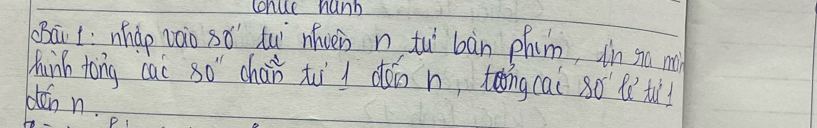 thực hành
Bài 1: nhập vào số tự nhiên n từ bàn phím, in ra màn
hình tổng các số chẵn từ 1 đến n, tổng các số lẻ từ 1
đến n.